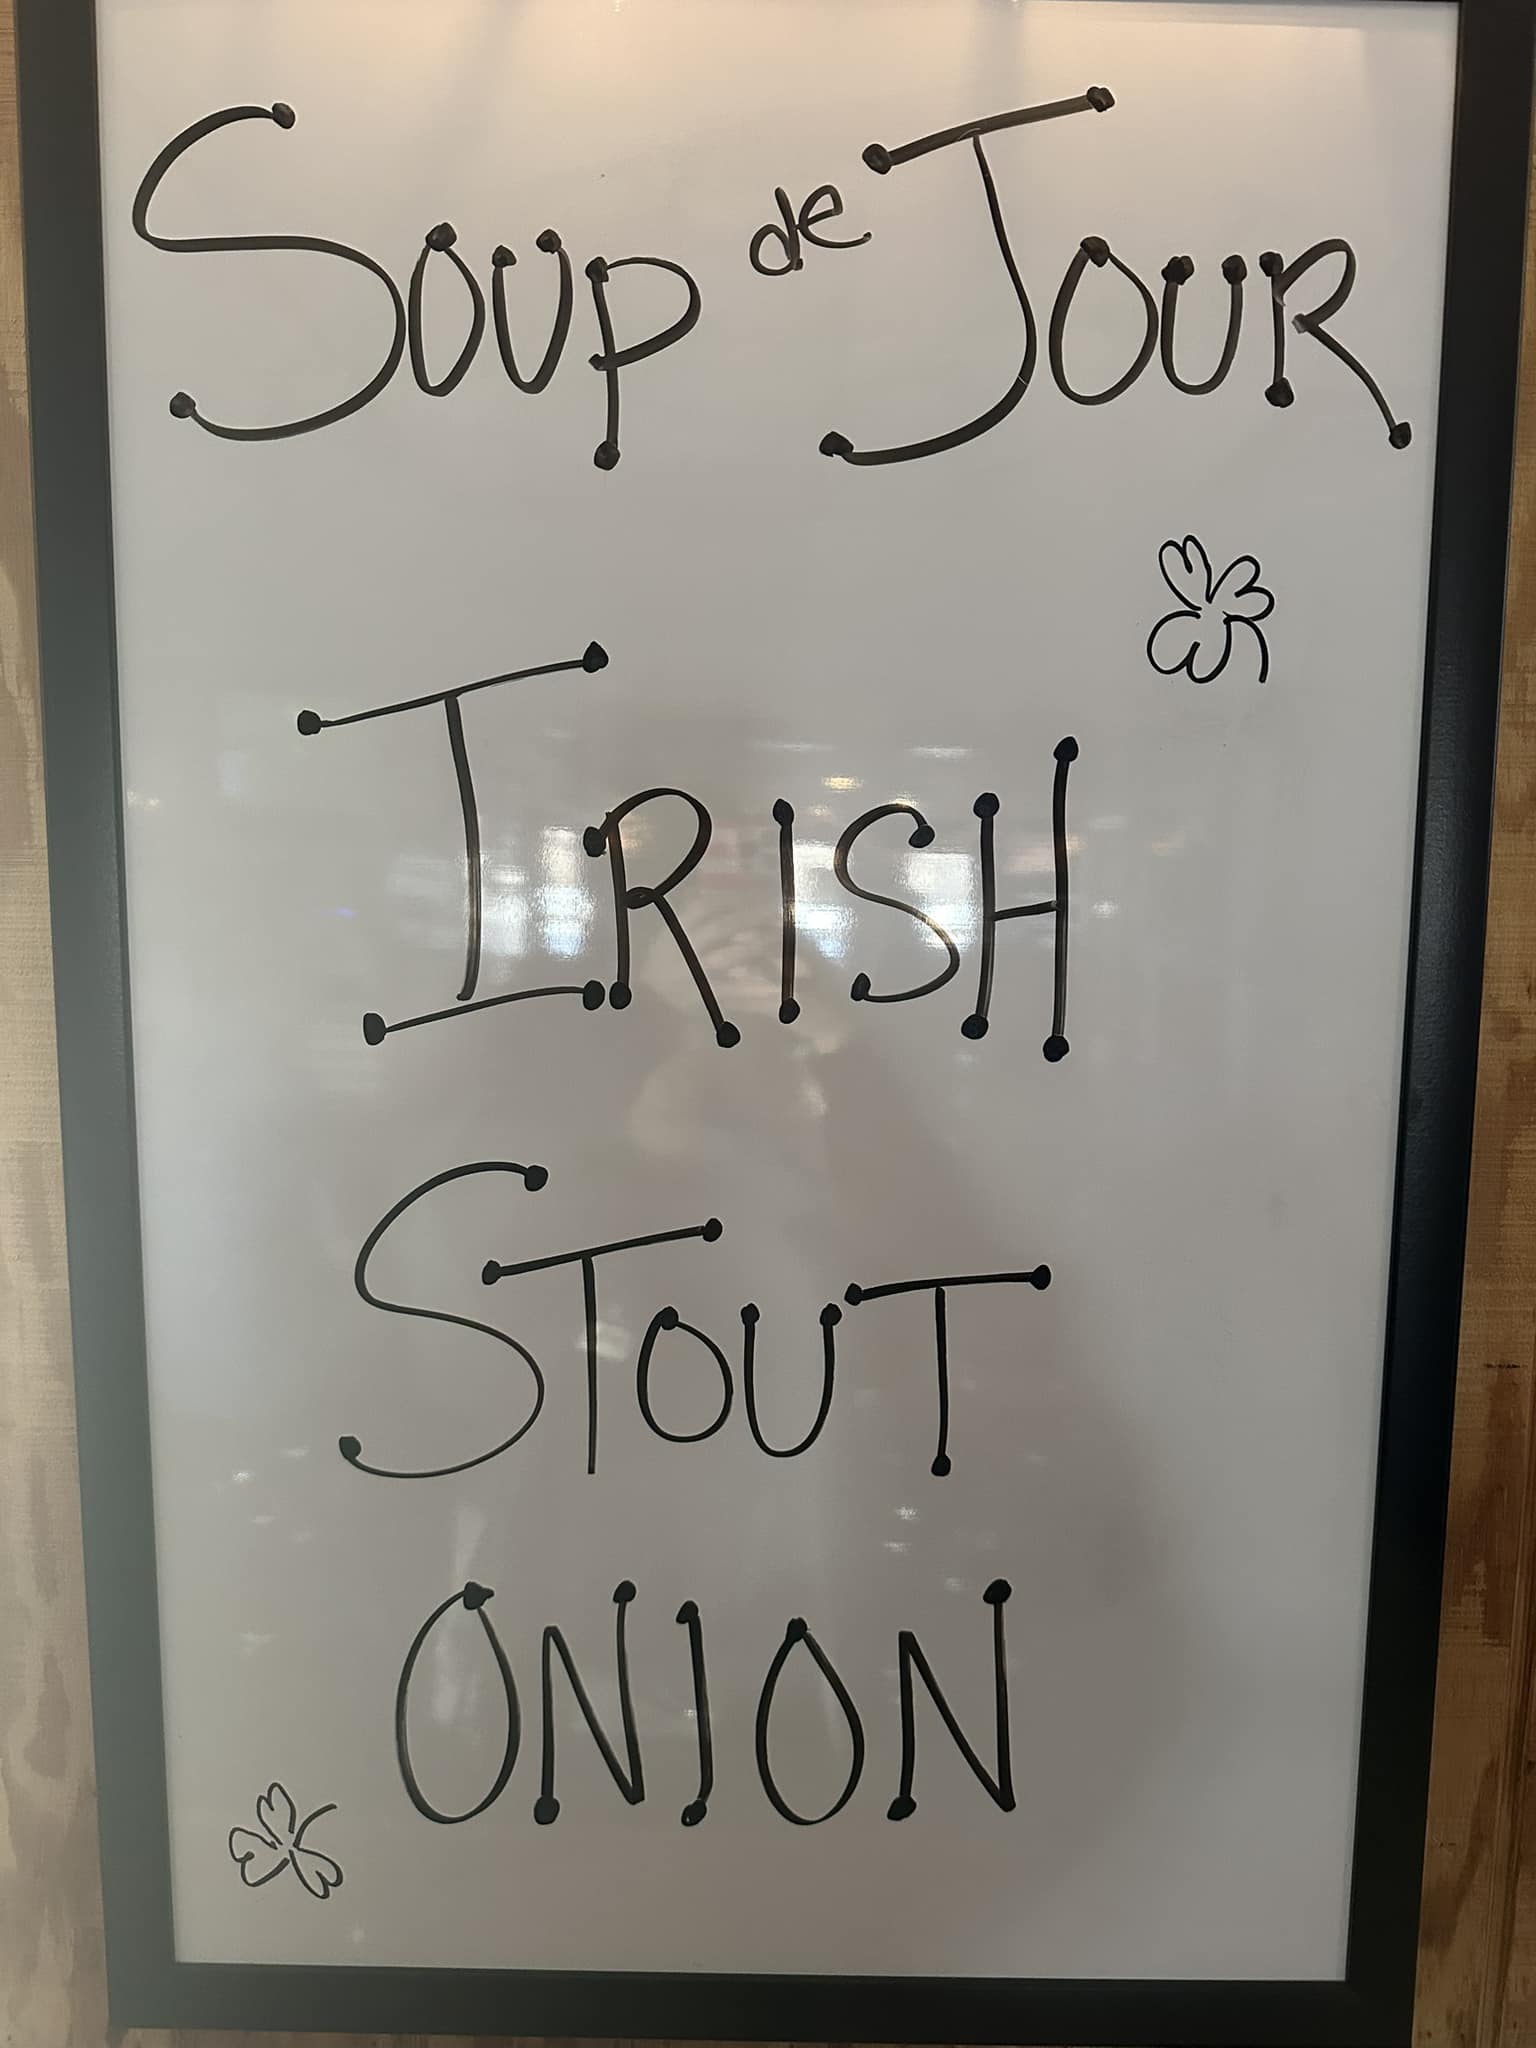 Soup de Jour
Irish
Stout
Onion